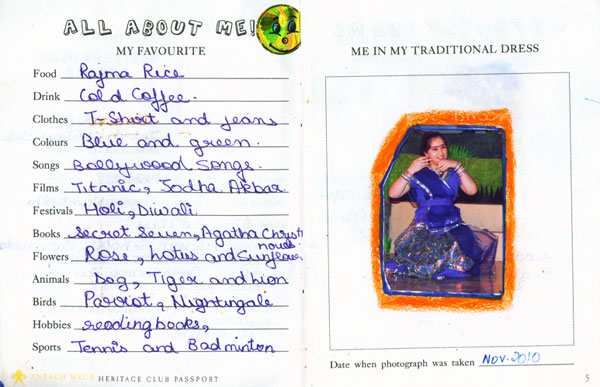 ALL ABOUT ME!
MY FAVOURITE
Food Rajma Rice
Drink Cold Coffee.
Clothes T-Shirt and jeans
Colours Blue and green.
Songs Bollywood Songs.
Films Titanic, Jodha Akbar
Festivals Holi, Diwali
Books Secret Seven, Agatha Christi
novels.
Flowers Rose, lotus and Sunflower
Animals Dog, Tiger and Lion
Birds Parrot, Nightingale
Hobbies reading books,
Sports Tennis and Badminton
INTACH HECS HERITAGE CLUB PASSPORT
ME IN MY TRADITIONAL DRESS
Date when photograph was taken NOV-2010
5